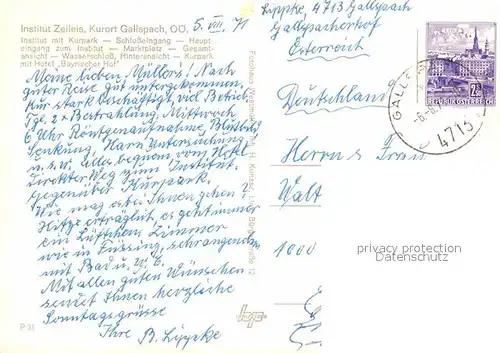 Institut Zeileis, Kurort Gallspach, OÖ.
Institut mit Kurpark — Schloßeingang — Haupt-
eingang zum Institut — Marktplatz — Gesamt-
ansicht — Wasserschloß, Hinteransicht — Kurpark
mit Hotel „Bayrischer Hof"
5. VIII. 71
Meine lieben Müllers! Nach
guter Reise gut untergekommen,
Kur stark beschäftigt, viel Betrieb,
Tgl. 2 x Bestrahlung, Mittwoch
6 Uhr Röntgenaufnahme, Blutbild
Senkung, Harn Untersuchung
u.s.w. alles bequem vom Hotel
direkter Weg zum Institut.
Gegenüber Kurpark.
Wie mag es bei Ihnen gehen?
Hitze erträglich, es geht immer
ein Lüftchen, Zimmer
wie in Füssing,
mit Bad u. W.C.
Mit allen guten Wünschen
sendet Ihnen herzliche
Sonntagsgrüsse
Ihre B. Lippke
P 31
Lippke, 4713 Gallspach
Gallspacherhof
Österreich
Deutschland
Herrn u Frau
Walt
1000
2S
REPUBLIK ÖSTERREICH
4713
privacy protection
DSGVO